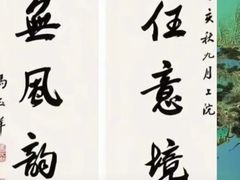 亥秋九月上浣
任意境
無風韵